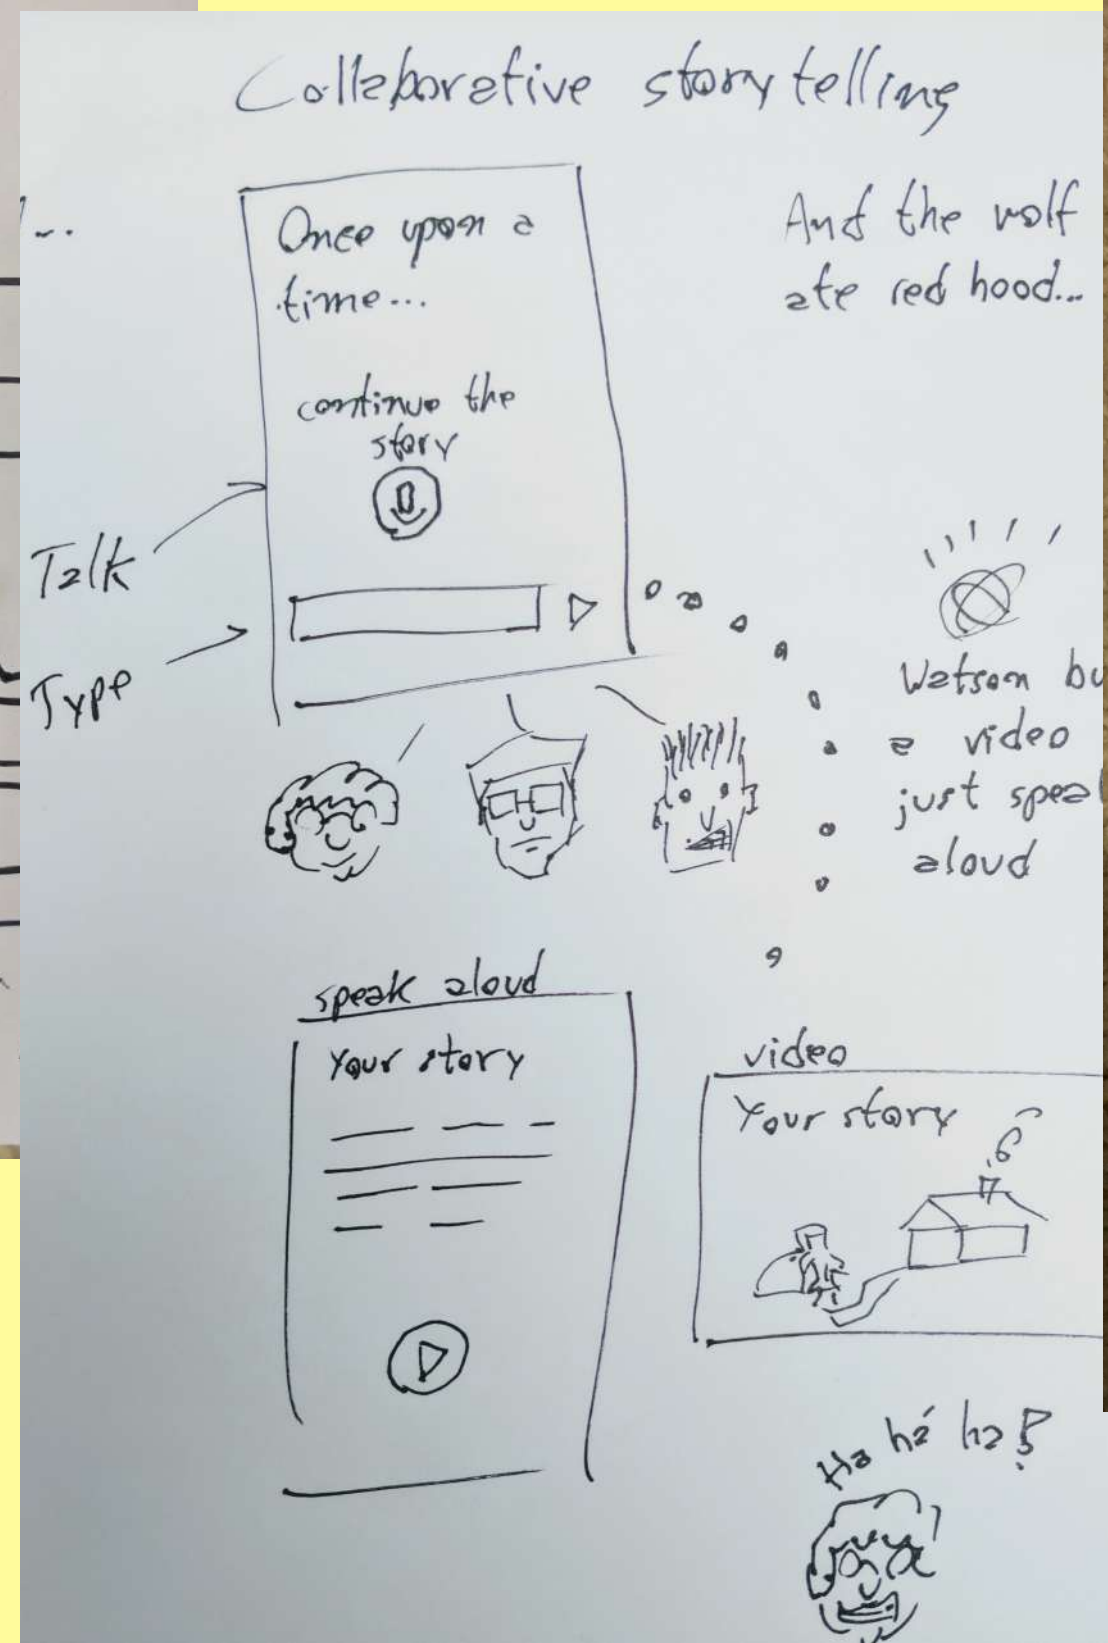 Collaborative storytelling
...
Once upon a
time...
continue the
story
And the wolf
ate red hood...
Talk
Type
Watson bu
a video
just spea
aloud
speak aloud
Your story
video
Your story
Ha há ha!